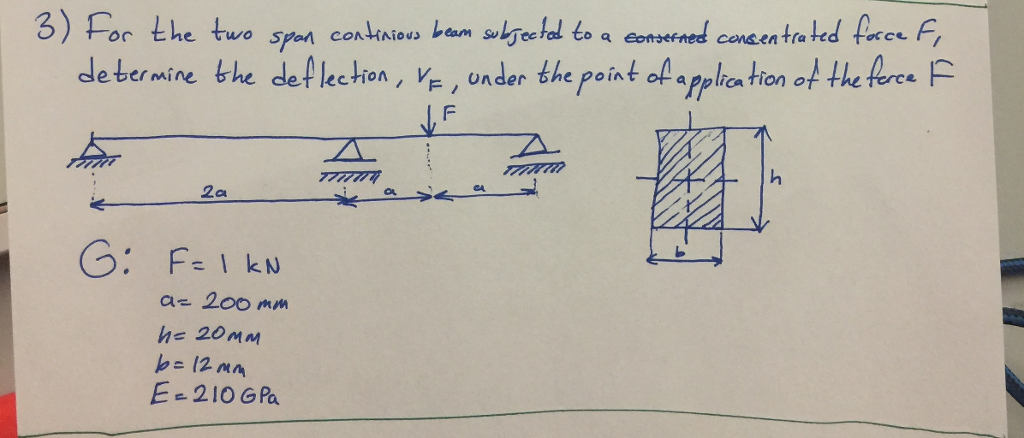 3) For the two span continious beam subjected to a conserned consentrated force F,
determine the deflection, VF, under the point of application of the force F
F
2a a a
h
b
G: F= 1 kN
a= 200 mm
h= 20mm
b= 12 mm
E= 210 GPa